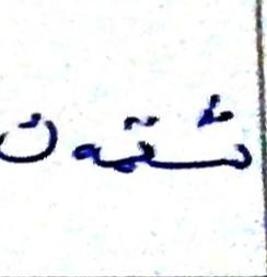 شتمەن